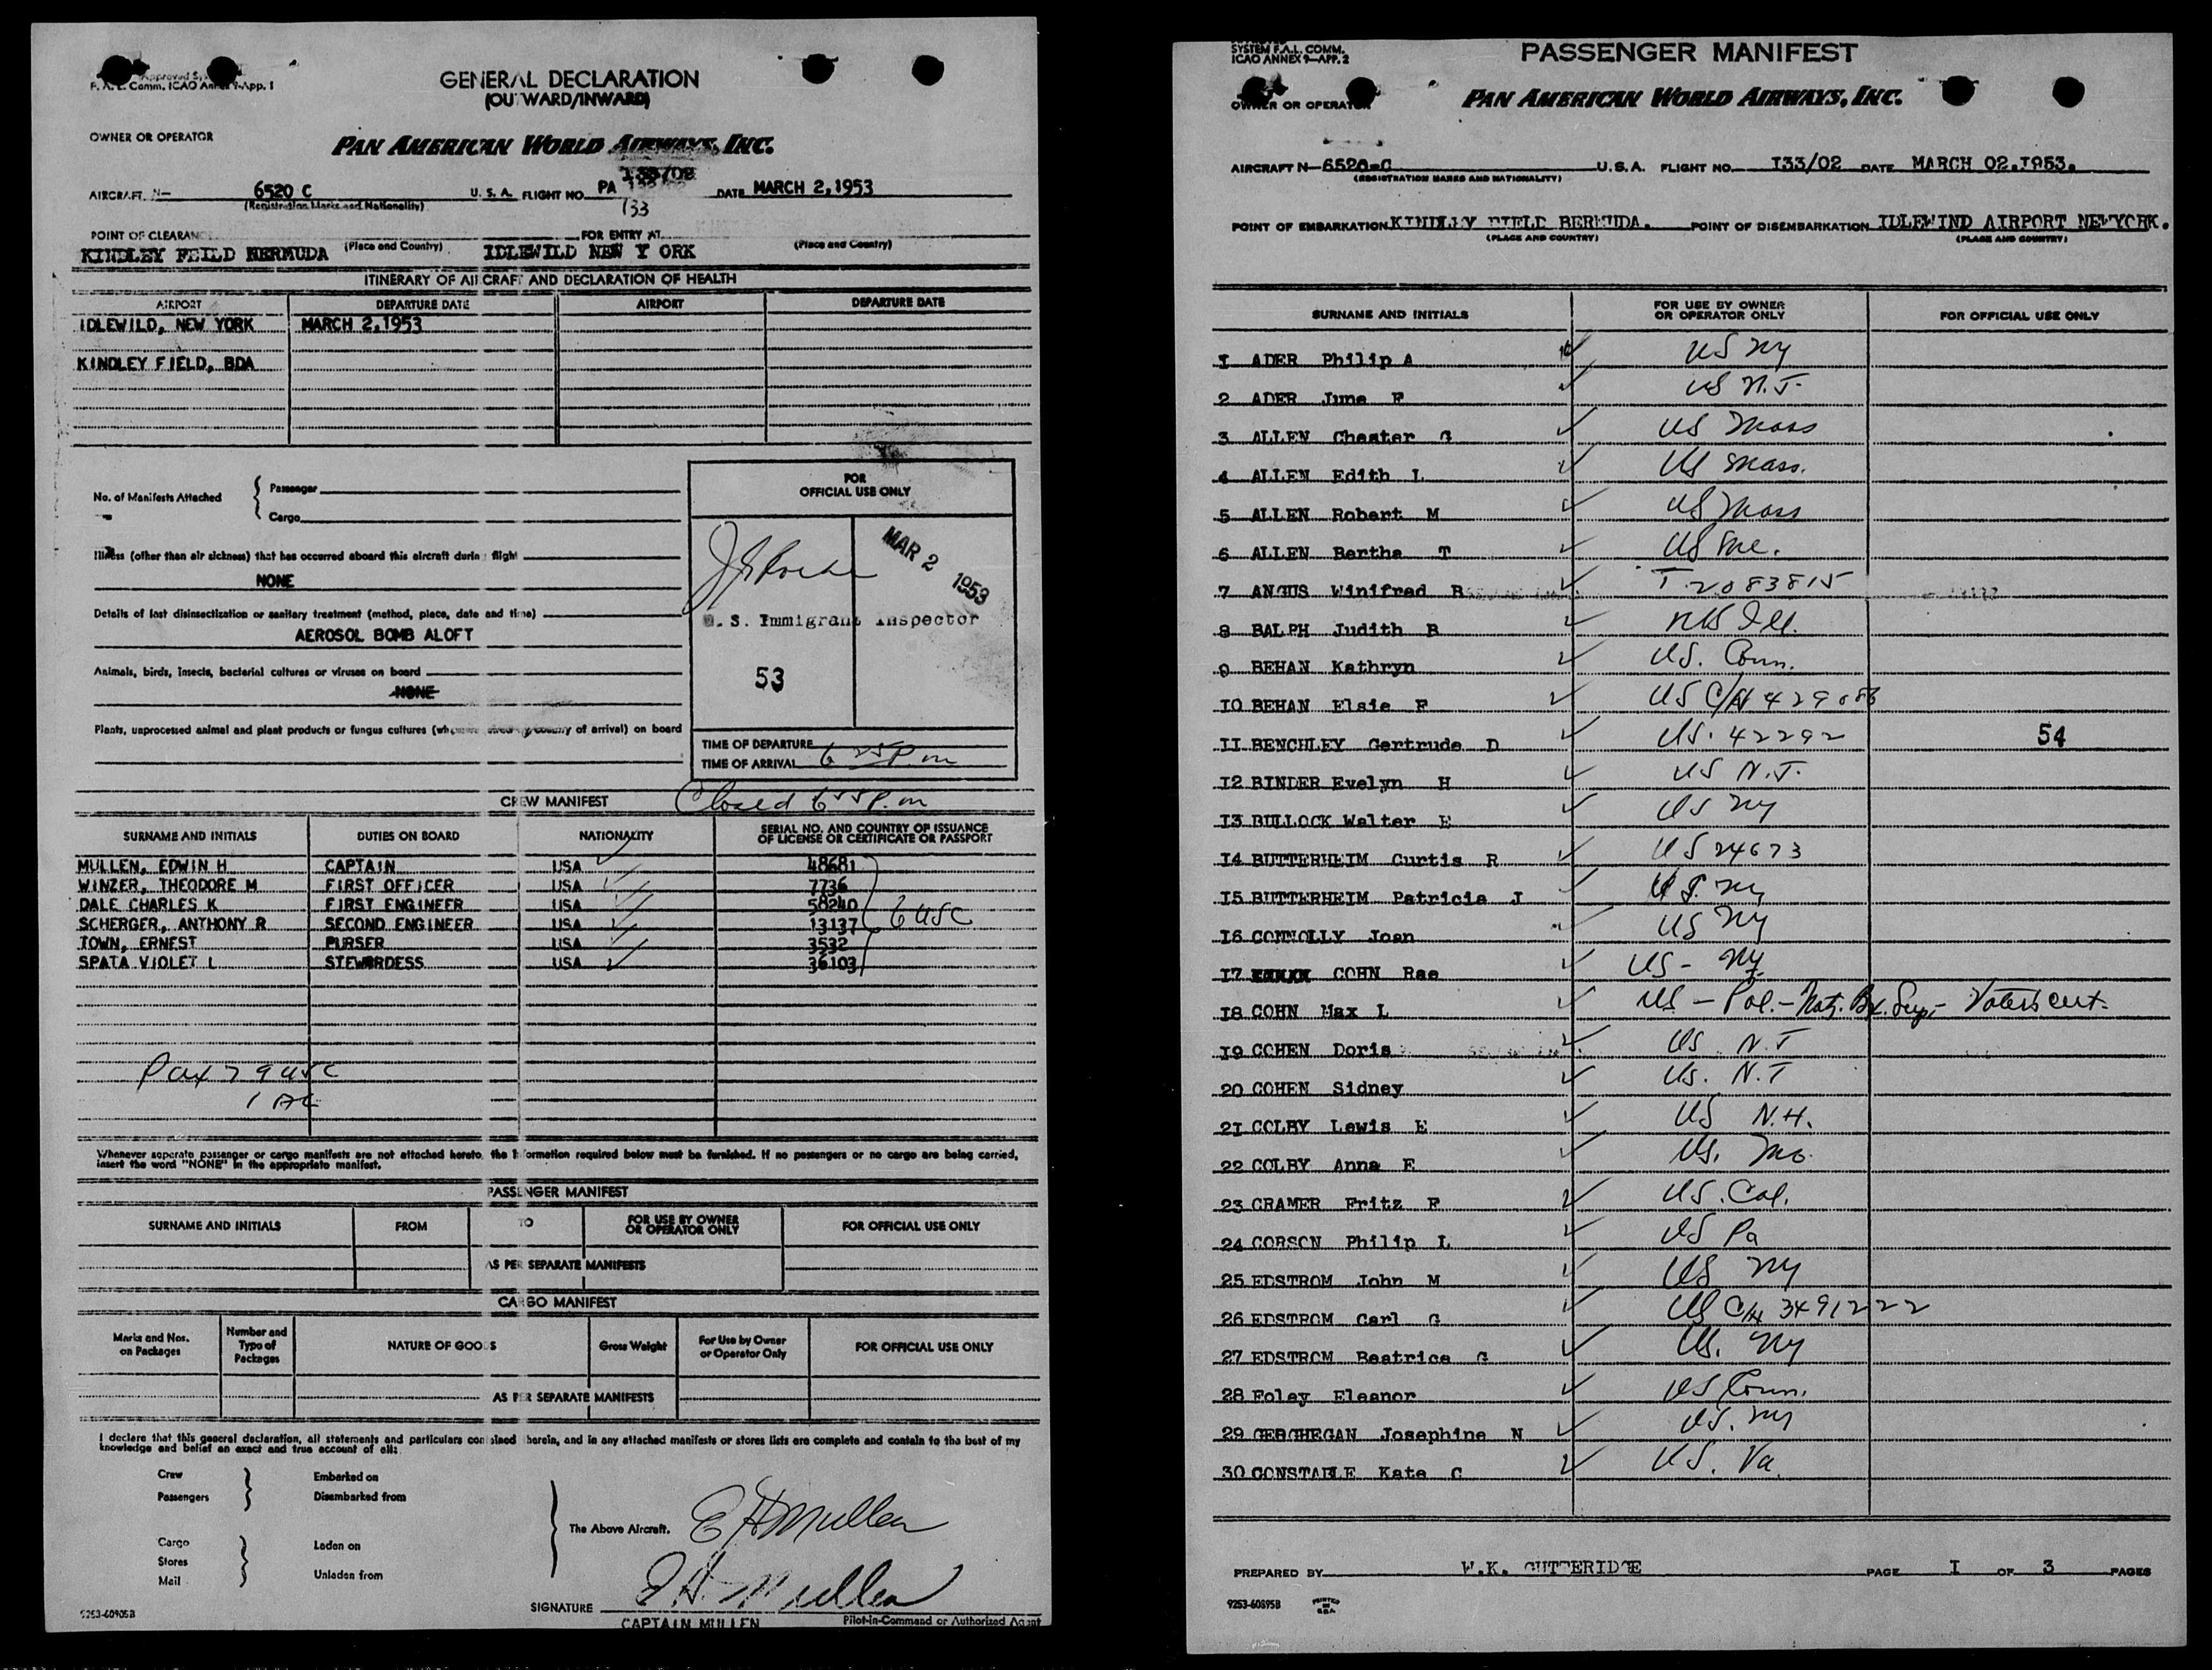 Approved Sys
F. A. L. Comm. ICAO Annex 9-App. 1
GENERAL DECLARATION
(OUTWARD/INWARD)
OWNER OR OPERATOR
PAN AMERICAN WORLD AIRWAYS, INC.
133/02
AIRCRAFT N- 6520 C U. S. A. FLIGHT NO. PA DATE MARCH 2,1953
(Registration Marks and Nationality)
133
POINT OF CLEARANC FOR ENTRY AT
KINDLEY FEILD BERMUDA (Place and Country) IDLEWILD NEW Y ORK (Place and Country)
ITINERARY OF AIRCRAFT AND DECLARATION OF HEALTH
AIRPORT DEPARTURE DATE AIRPORT DEPARTURE DATE
IDLEWILD, NEW YORK MARCH 2,1953
KINDLEY FIELD, BDA
No. of Manifests Attached
Passenger
Cargo
Illness (other than air sickness) that has occurred aboard this aircraft during flight
NONE
Details of last disinsectization or sanitary treatment (method, place, date and time)
AEROSOL BOMB ALOFT
Animals, birds, insects, bacterial cultures or viruses on board
NONE
Plants, unprocessed animal and plant products or fungus cultures (where of arrival) on board
FOR
OFFICIAL USE ONLY
MAR 2 1953
U. S. Immigrant Inspector
53
TIME OF DEPARTURE
TIME OF ARRIVAL 6 25 P.m
Closed 6 55 P.m
CREW MANIFEST
SURNAME AND INITIALS DUTIES ON BOARD NATIONALITY SERIAL NO. AND COUNTRY OF ISSUANCE
OF LICENSE OR CERTIFICATE OR PASSPORT
MULLEN, EDWIN H CAPTAIN USA 48681
WINZER, THEODORE M FIRST OFFICER USA 7736
DALE CHARLES K FIRST ENGINEER USA 58240
SCHERGER, ANTHONY R SECOND ENGINEER USA 13137 6 USC
TOWN, ERNEST PURSER USA 3532
SPATA VIOLET L STEWARDESS USA 36103
Pax 79 USC
1 AL
Whenever separate passenger or cargo manifests are not attached hereto, the information required below must be furnished. If no passengers or no cargo are being carried,
insert the word "NONE" in the appropriate manifest.
PASSENGER MANIFEST
SURNAME AND INITIALS FROM TO FOR USE BY OWNER
OR OPERATOR ONLY FOR OFFICIAL USE ONLY
AS PER SEPARATE MANIFESTS
CARGO MANIFEST
Marks and Nos.
on Packages
Number and
Type of
Packages
NATURE OF GOODS
Gross Weight
For Use by Owner
or Operator Only
FOR OFFICIAL USE ONLY
AS PER SEPARATE MANIFESTS
I declare that this general declaration, all statements and particulars contained herein, and in any attached manifests or stores lists are complete and contain to the best of my
knowledge and belief an exact and true account of all:
Crew
Passengers
Embarked on
Disembarked from
Cargo
Stores
Mail
Laden on
Unladen from
The Above Aircraft.
E H Mullen
SIGNATURE E H Mullen
CAPTAIN MULLEN Pilot-in-Command or Authorized Agent
9253-60905B
SYSTEM F.A.L. COMM.
ICAO ANNEX 9-APP. 2
PASSENGER MANIFEST
OWNER OR OPERATOR
PAN AMERICAN WORLD AIRWAYS, INC.
AIRCRAFT N-6520-C U.S.A. FLIGHT NO. I33/02 DATE MARCH 02.I953.
(REGISTRATION MARKS AND NATIONALITY)
POINT OF EMBARKATION KINDLEY FIELD BERMUDA. POINT OF DISEMBARKATION IDLEWIND AIRPORT NEWYORK.
(PLACE AND COUNTRY) (PLACE AND COUNTRY)
SURNAME AND INITIALS FOR USE BY OWNER
OR OPERATOR ONLY FOR OFFICIAL USE ONLY
I ADER Philip A US NY
2 ADER June F US N.J.
3 ALLEN Chester G US Mass
4 ALLEN Edith L US Mass.
5 ALLEN Robert M US Mass
6 ALLEN Bertha T US Me.
7 ANGUS Winifred B T 2083815
8 BALPH Judith B US Ill.
9 BEHAN Kathryn US. Conn.
IO BEHAN Elsie F US C/N
II BENCHLEY Gertrude D US. 42292 54
I2 BINDER Evelyn H US N.J.
I3 BULLOCK Walter E US NY
I4 BUTTERHEIM Curtis R US 24673
I5 BUTTERHEIM Patricia J US. NY
I6 CONNOLLY Joan US NY
I7 COHN Rae US - NY
I8 COHN Max L US - Pol. - Natz. Voters cert.
I9 COHEN Doris US N.J
20 COHEN Sidney US. N.J
2I COLBY Lewis E US N.H.
22 COLBY Anna E US. Mo.
23 CRAMER Fritz F US. Cal.
24 CORSON Philip L US Pa
25 EDSTROM John M US NY
26 EDSTROM Carl G US C/N 3491222
27 EDSTROM Beatrice G US. NY
28 Foley Eleanor US Conn.
29 GEBGHEGAN Josephine N US. NY
30 CONSTABLE Kate C US. Va.
PREPARED BY W.K. GUTTERIDGE PAGE I OF 3 PAGES
9253-60895B PRINTED IN U.S.A.